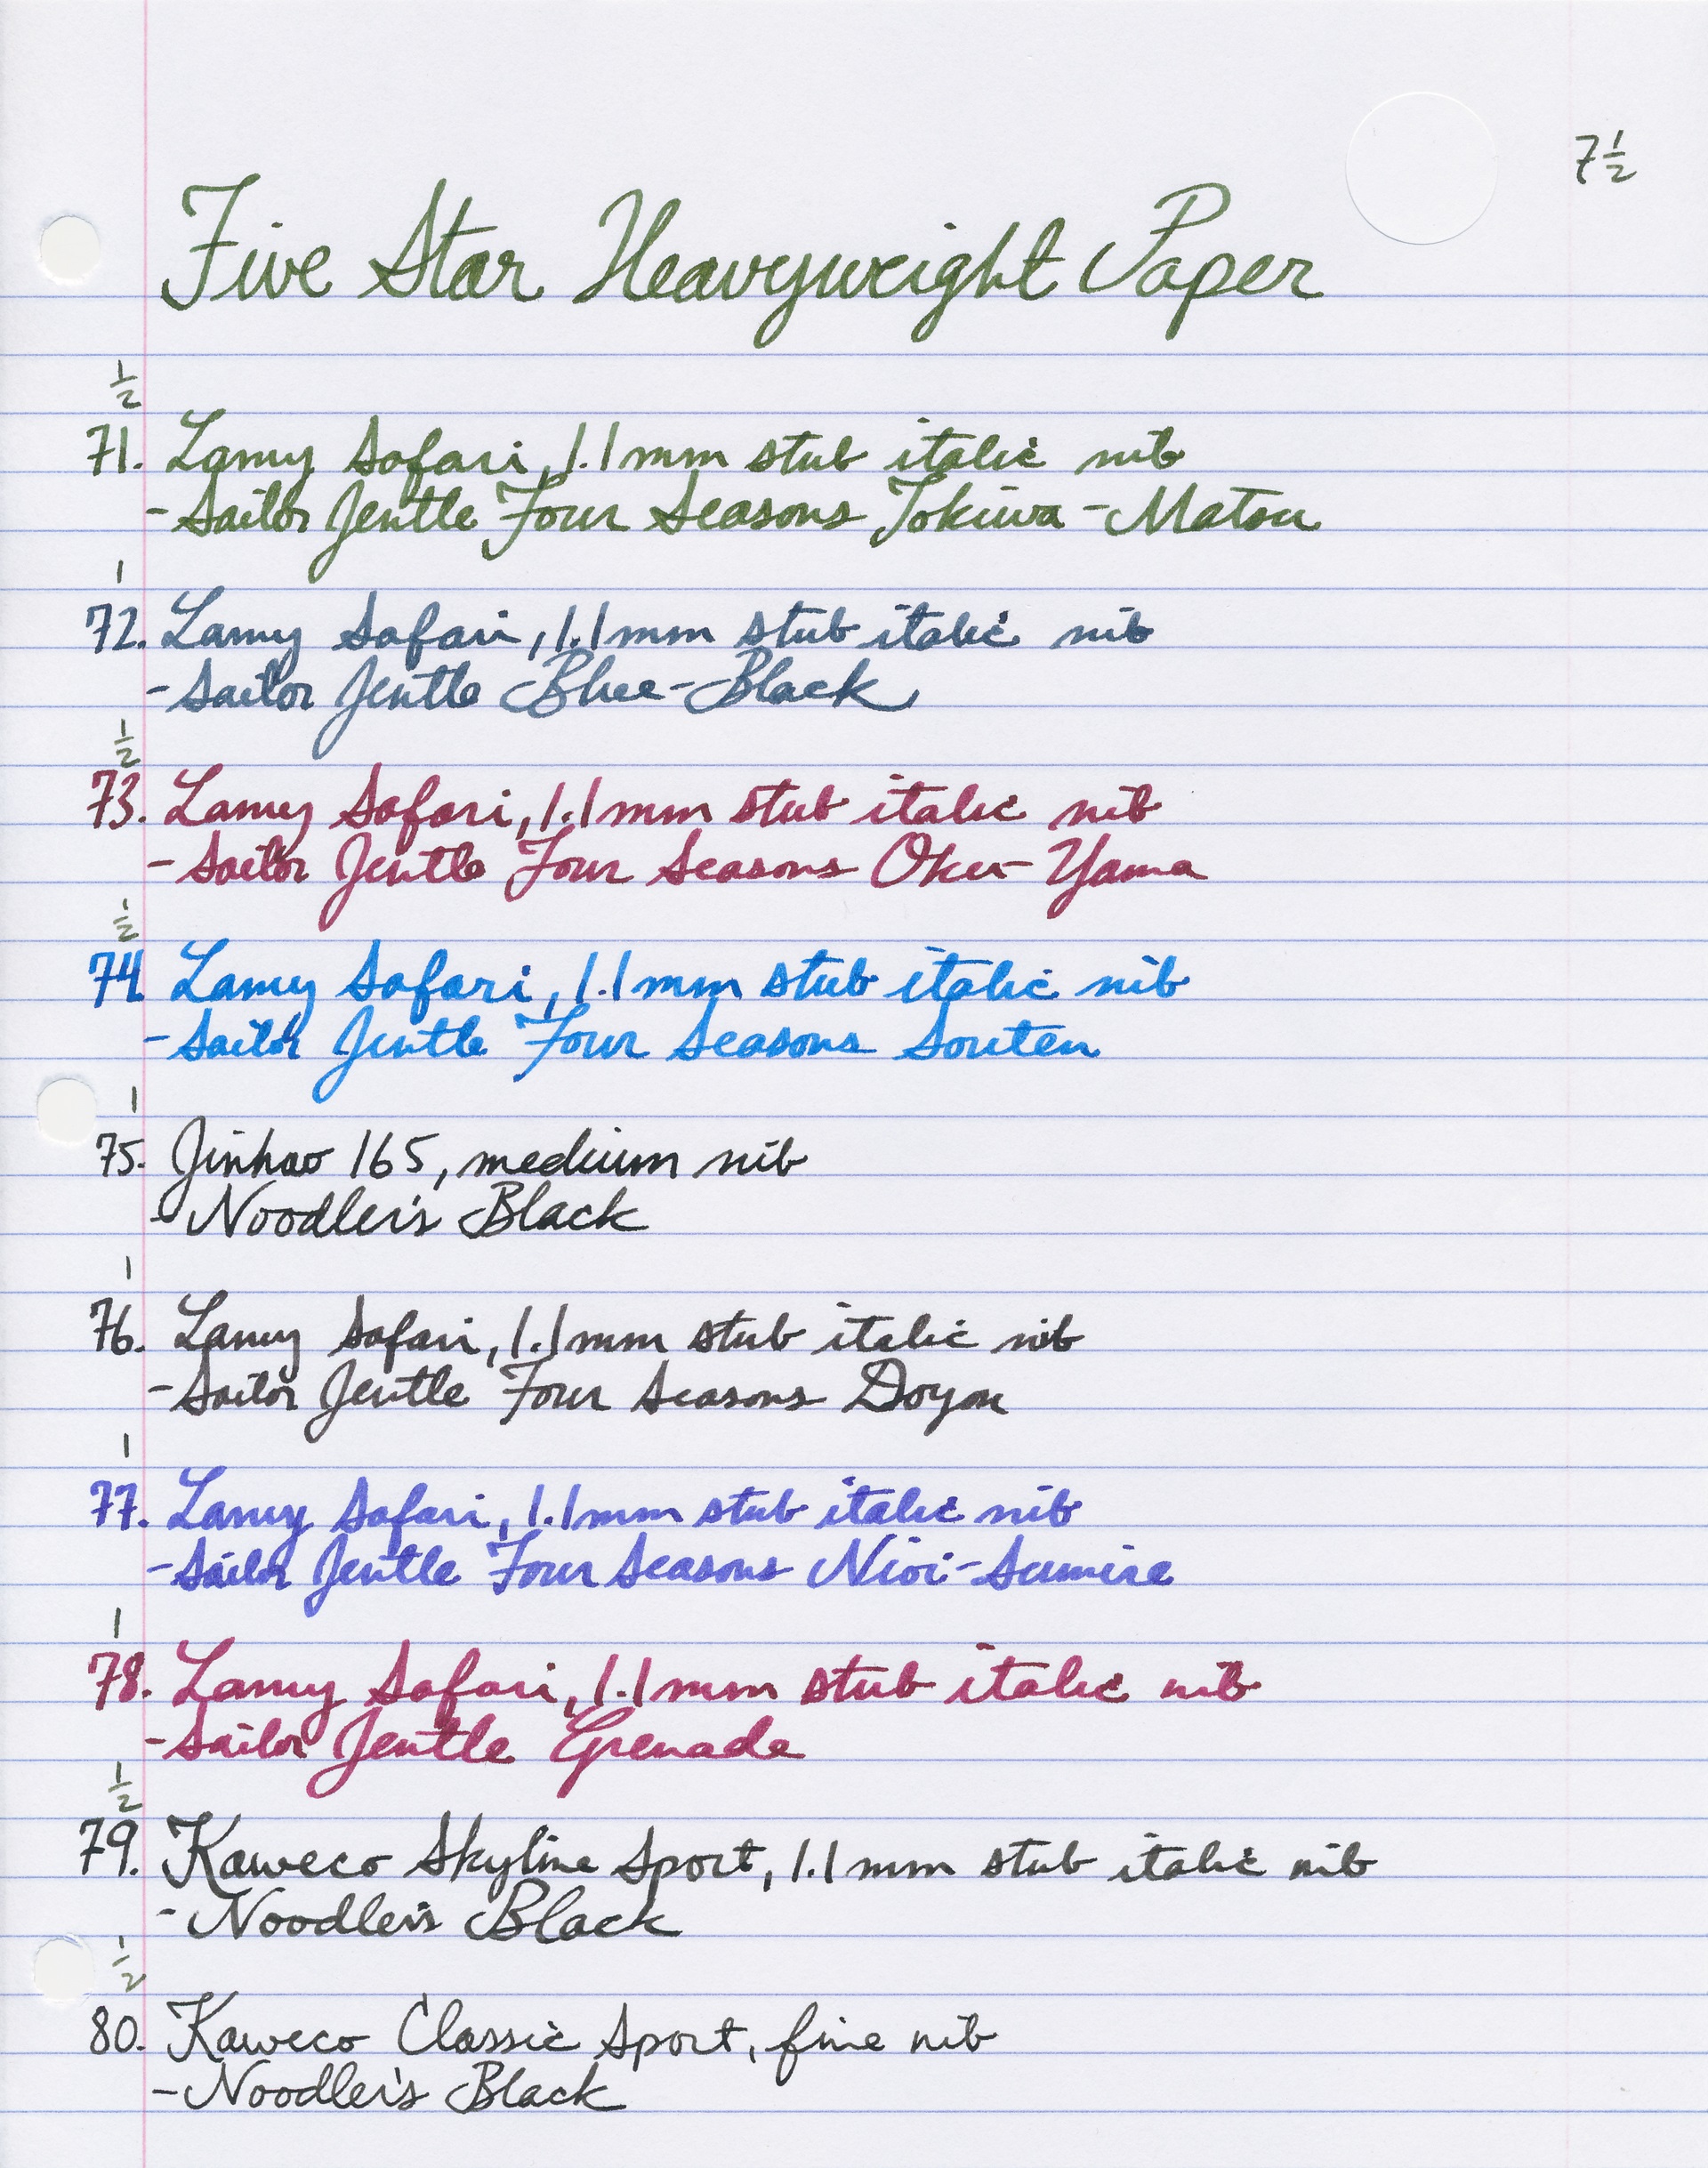 7½
Five Star Heavyweight Paper
½
71. Lamy Safari, 1.1mm stub italic nib
- Sailor Jentle Four Seasons Tokiwa-Matsu
1
72. Lamy Safari, 1.1mm stub italic nib
- Sailor Jentle Blue-Black
½
73. Lamy Safari, 1.1mm stub italic nib
- Sailor Jentle Four Seasons Oku-Yama
½
74. Lamy Safari, 1.1mm stub italic nib
- Sailor Jentle Four Seasons Souten
1
75. Jinhao 165, medium nib
- Noodler's Black
1
76. Lamy Safari, 1.1mm stub italic nib
- Sailor Jentle Four Seasons Doyou
1
77. Lamy Safari, 1.1mm stub italic nib
- Sailor Jentle Four Seasons Nioi-Sumire
1
78. Lamy Safari, 1.1mm stub italic nib
- Sailor Jentle Grenade
½
79. Kaweco Skyline Sport, 1.1mm stub italic nib
- Noodler's Black
½
80. Kaweco Classic Sport, fine nib
- Noodler's Black